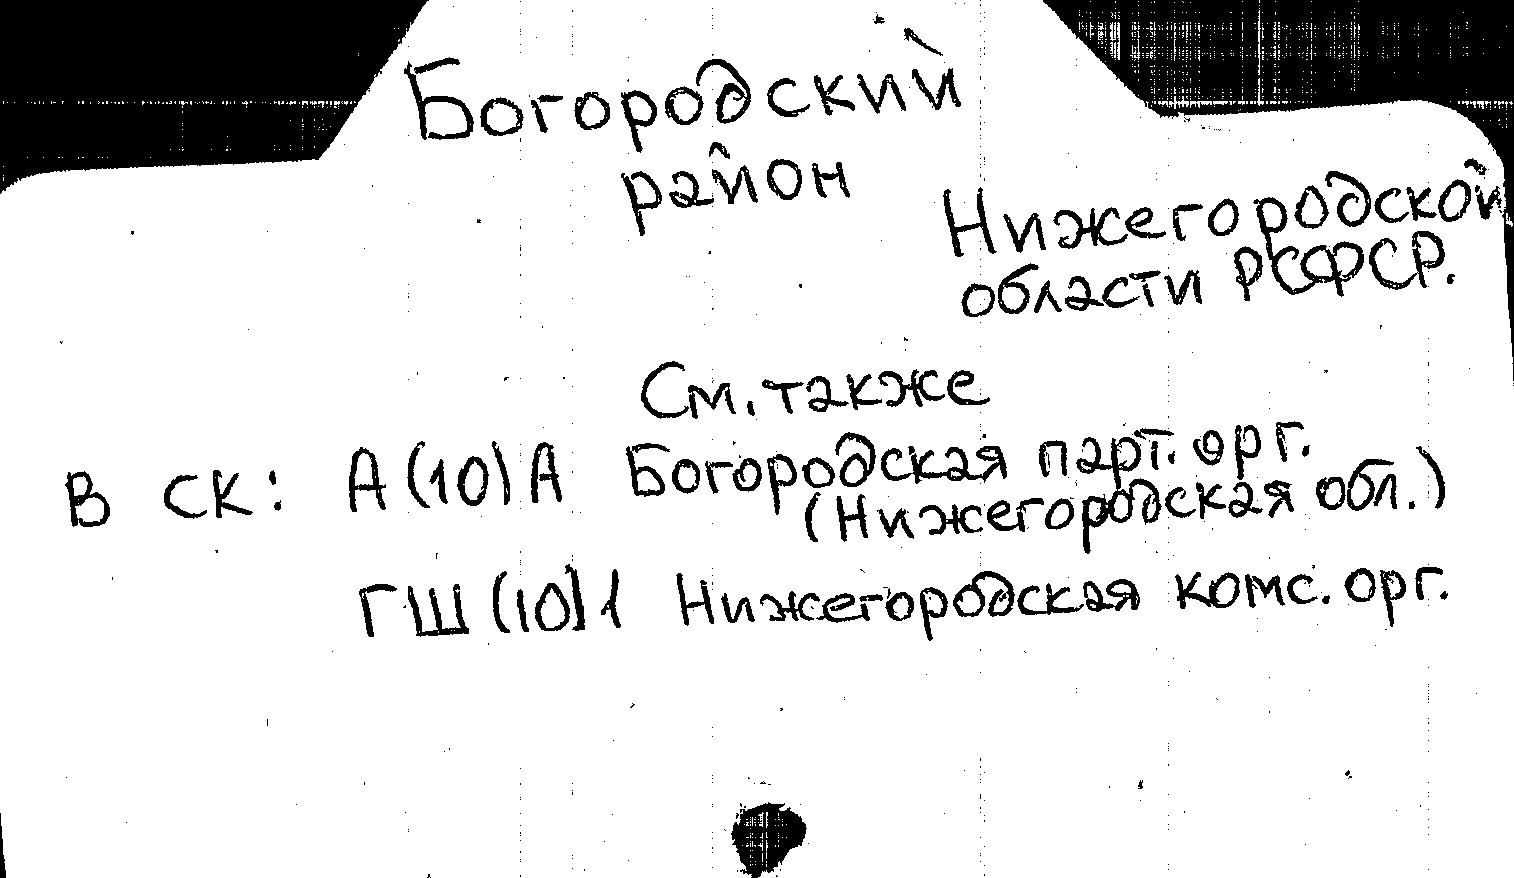 Богородский
район
Нижегородской
области РСФСР.
См. также
В СК: А(10)А Богородская парт. орг.
(Нижегородская обл.)
ГШ(10)1 Нижегородская комс. орг.